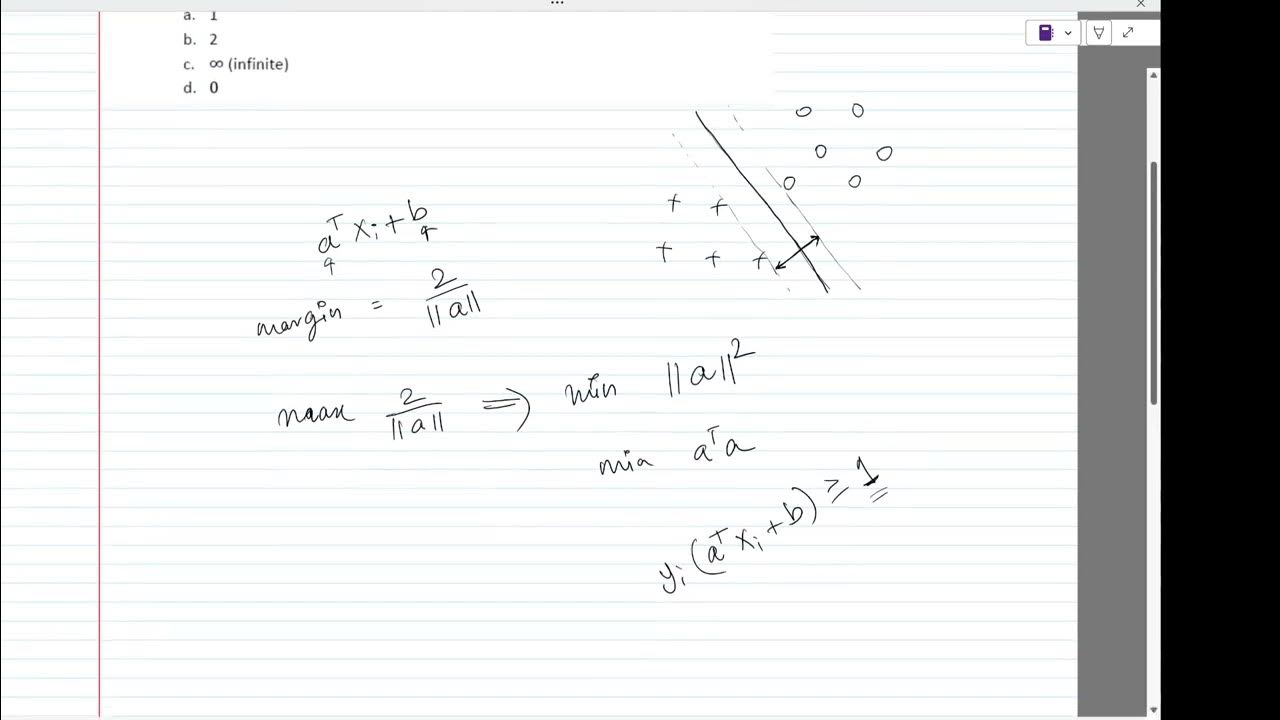 a. 1
b. 2
c. ∞ (infinite)
d. 0
aᵀxᵢ + b
margin = 2/||a||
max 2/||a|| ⇒ min ||a||²
min aᵀa
yᵢ(aᵀxᵢ + b) ≥ 1